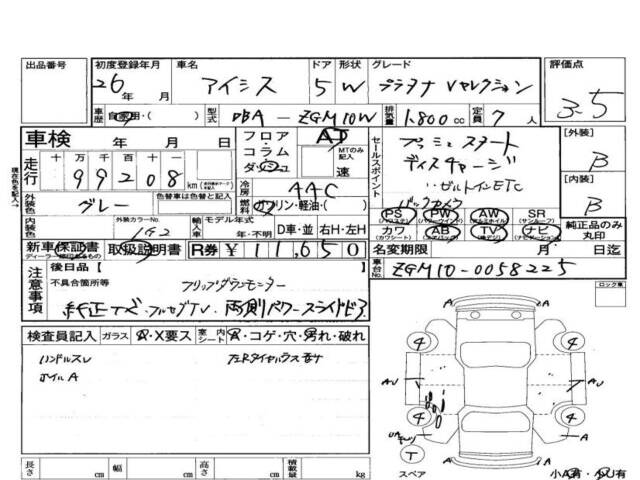 出品番号
初度登録年月
26年 月
車名
アイシス
ドア
5
形状
W
グレード
プラタナ Vセレクション
評価点
3.5
車歴
自家用・( )
型式
DBA - ZGM10W
排気量
1.800cc
定員
7人
車検
年 月 日
フロア
コラム
ダッシュ
AT
MTのみ記入
速
セールスポイント
プッシュスタート
ディスチャージ
ビルトインETC
バックカメラ
[外装]
B
[内装]
B
現在色を記入→
走行
十 万 千 百 十 一
99208
km
冷房
AAC
燃料
ガソリン・軽油・( )
外装色
グレー
色替車は色替と記入
内装色
外装カラーNo.
1G2
輸入車
モデル年式
年・不明
D車・並
右H・左H
PS
(パワステ)
PW
(パワーウインド)
AW
(アルミホイル)
SR
(サンルーフ)
カワ
(カワシート)
AB
(エアバック)
TV
ナビ
(ナビゲーション)
純正品のみ丸印
新車保証書
取扱説明書
R券
¥11,650
名変期限
月 日迄
車台No.
ZGM10-0058225
注意事項
後日品[ ]
不具合箇所等
フリップダウンモニター
純正ナビ・フルセグTV
両側パワースライドドア
ロック車
検査員記入
ガラス
A・X要ス
室内
シート
A・コゲ・穴・汚れ・破れ
ハンドルスレ
ホイルA
A
A
4
4
AU
AU
4
4
T
スペア
A
A
小A有・小U有
長さ
cm
幅
cm
高さ
cm
積載量
kg